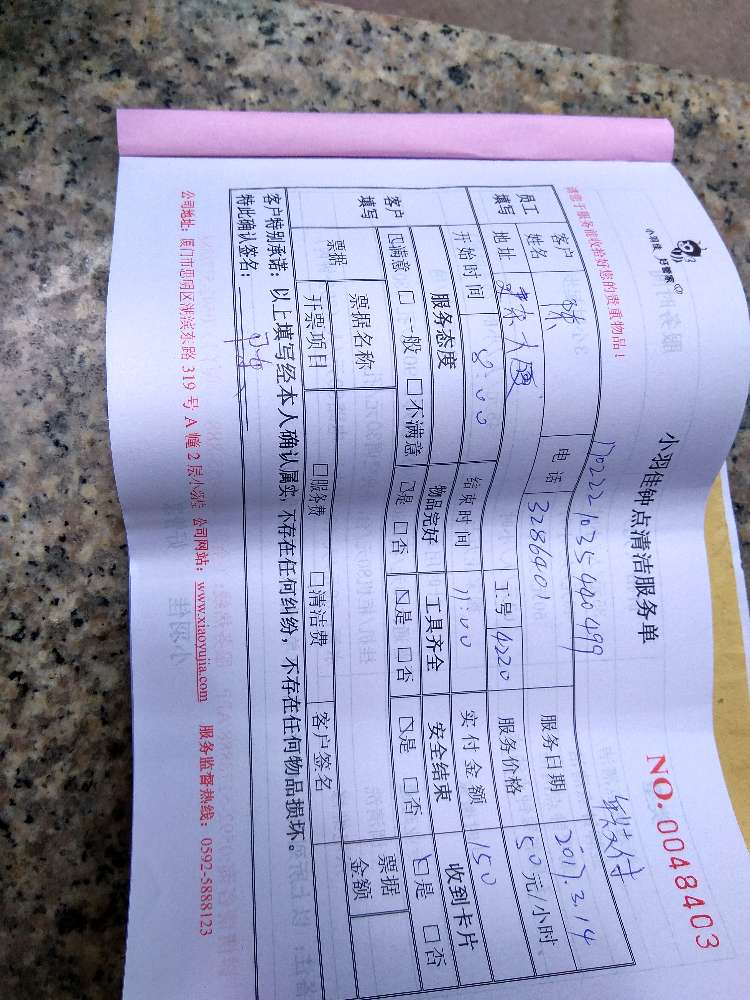 小羽佳 好管家
小羽佳钟点清洁服务单
NO.0048403
请您于服务前收拾好您的贵重物品!
1702221035440499
员工填写
客户姓名
陈
电话
3286401
服务日期
2017.3.14
地址
大厦
工号
4220
服务价格
50元/小时
开始时间
8:00
结束时间
11:00
实付金额
150
客户填写
服务态度
物品完好
工具齐全
安全结束
收到卡片
☑满意 □一般 □不满意
☑是 □否
☑是 □否
☑是 □否
☑是 □否
票据
票据名称
票据金额
开票项目
□服务费 □清洁费
客户签名
客户特别承诺:以上填写经本人确认属实,不存在任何纠纷,不存在任何物品损坏。
特此确认签名:
公司地址:厦门市思明区湖滨东路 319 号 A 幢 2 层小羽佳 公司网站:www.xiaoyujia.com 服务监督热线:0592-5888123